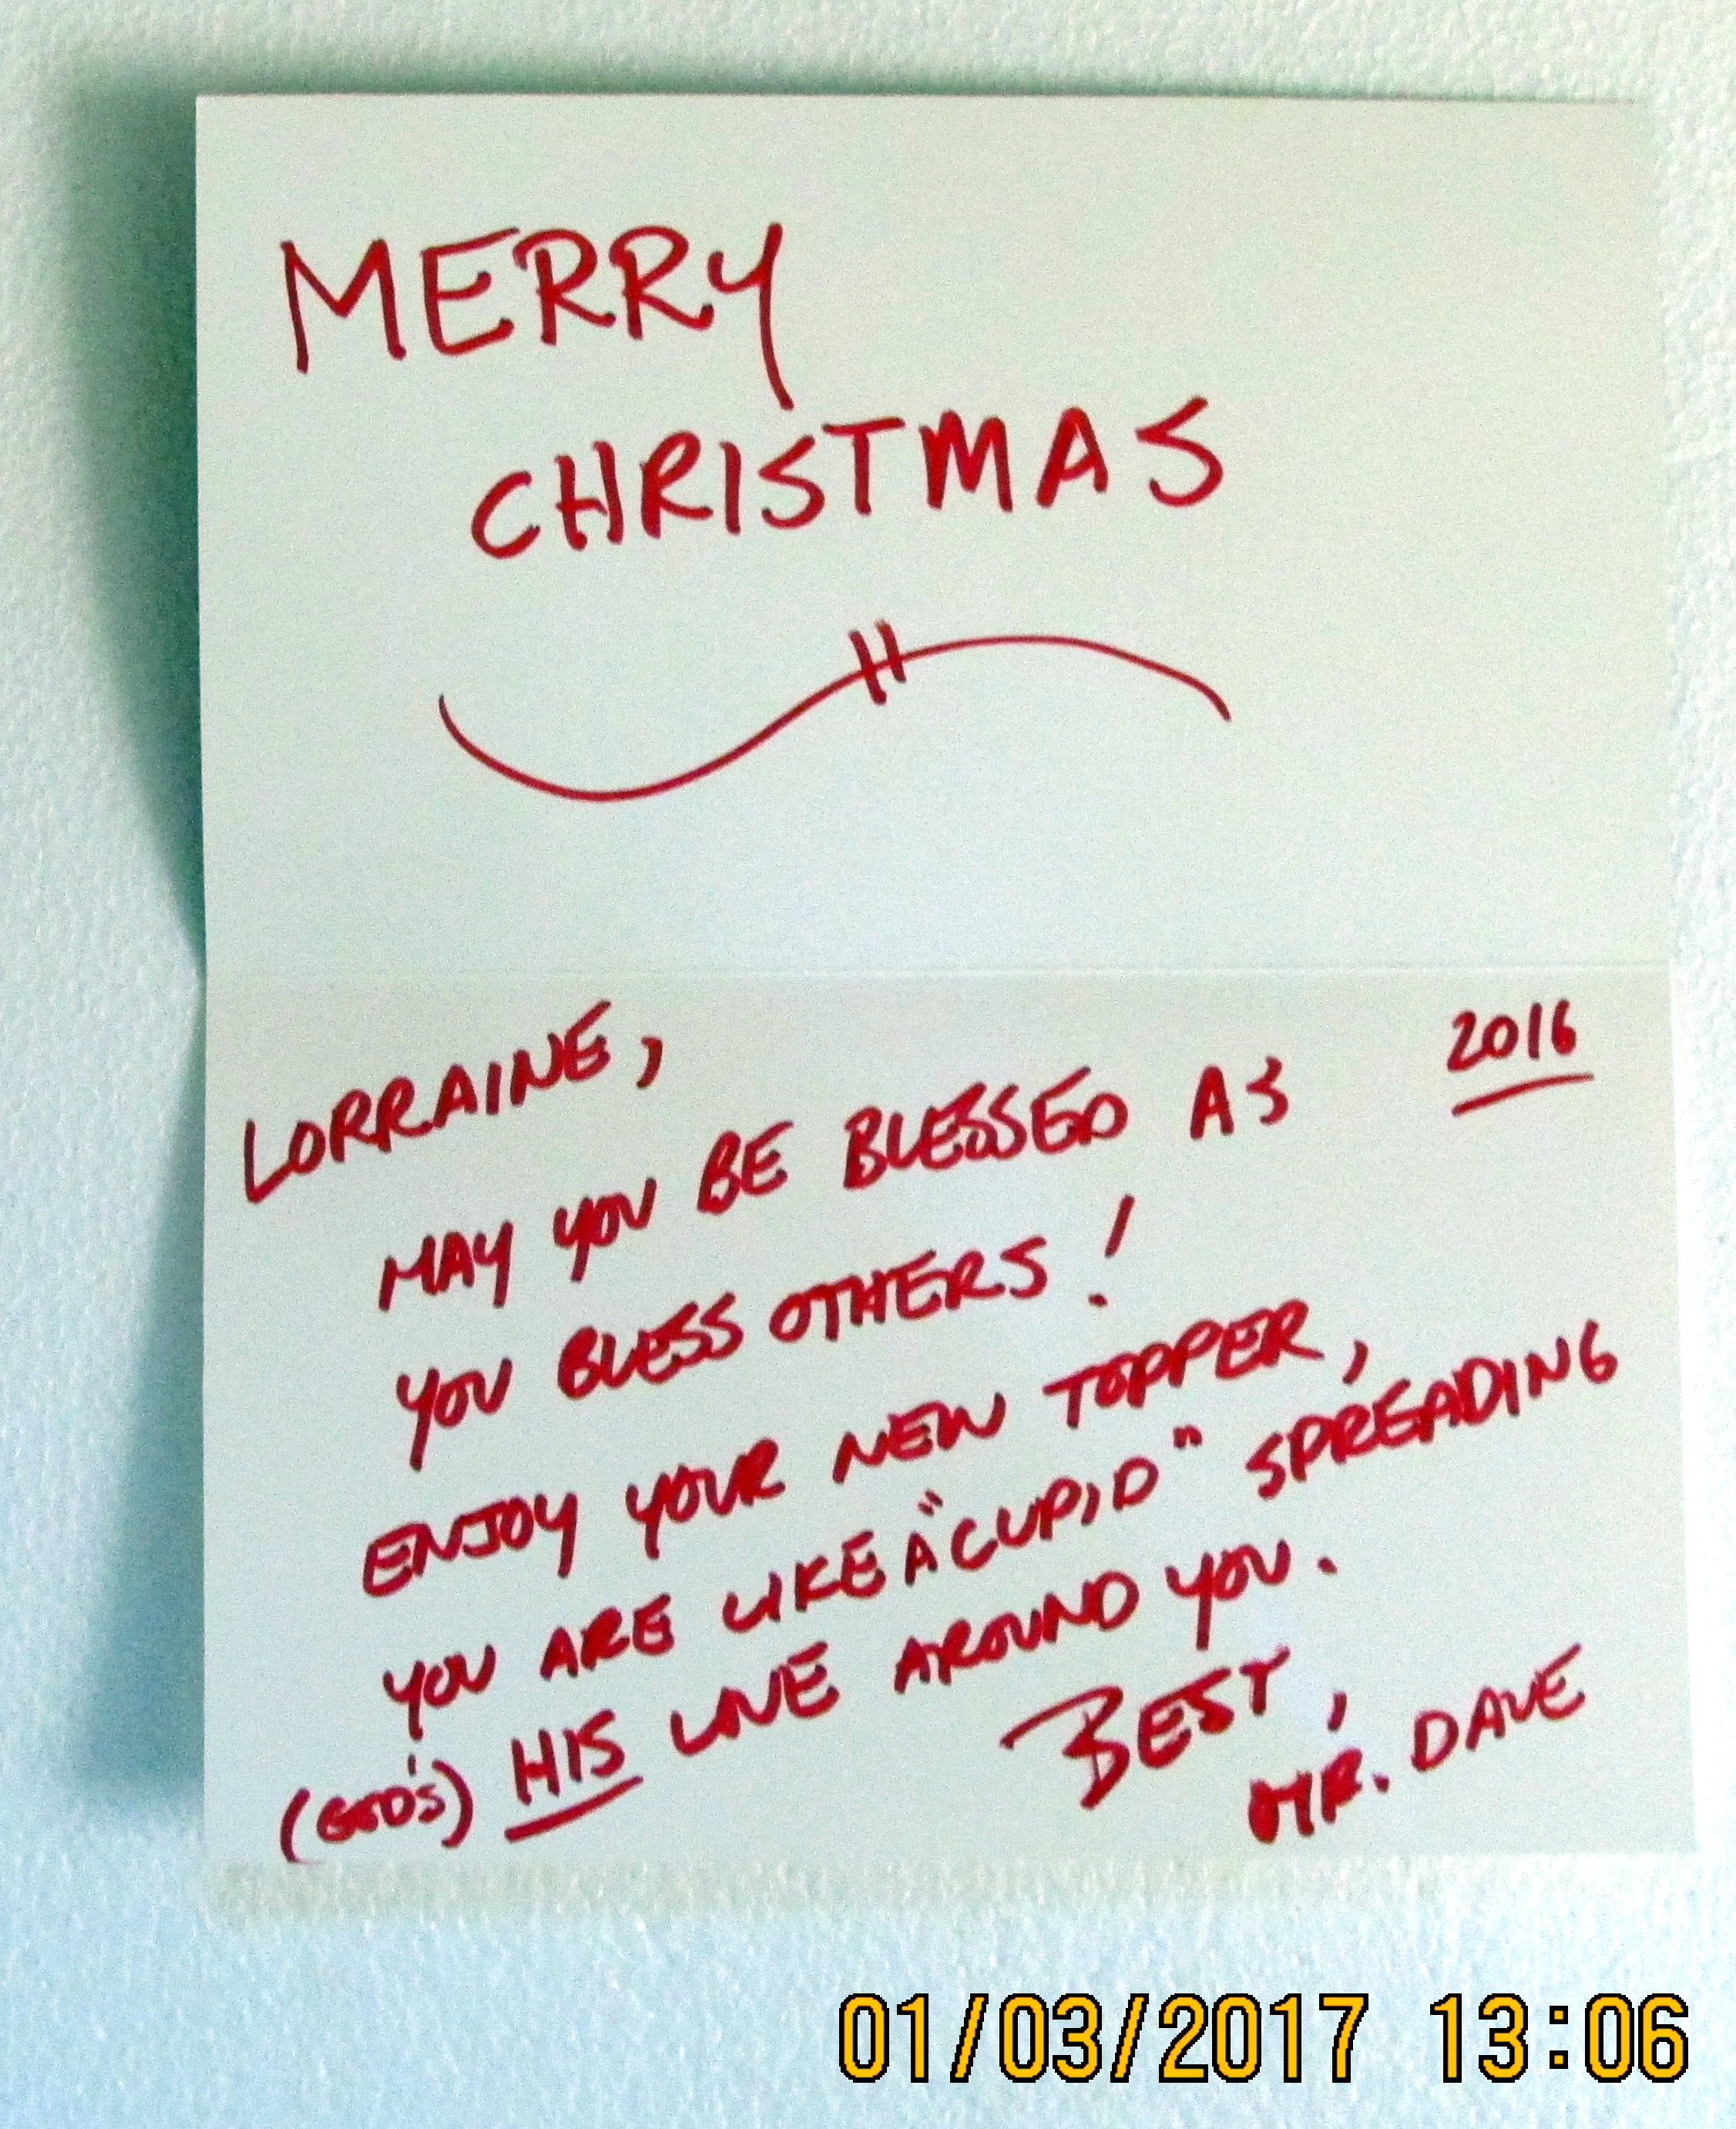 MERRY
CHRISTMAS
2016
LORRAINE,
MAY YOU BE BLESSED AS
YOU BLESS OTHERS!
ENJOY YOUR NEW TOPPER,
YOU ARE LIKE A "CUPID" SPREADING
(GOD'S) HIS LOVE AROUND YOU.
BEST,
MR. DAVE
01/03/2017 13:06